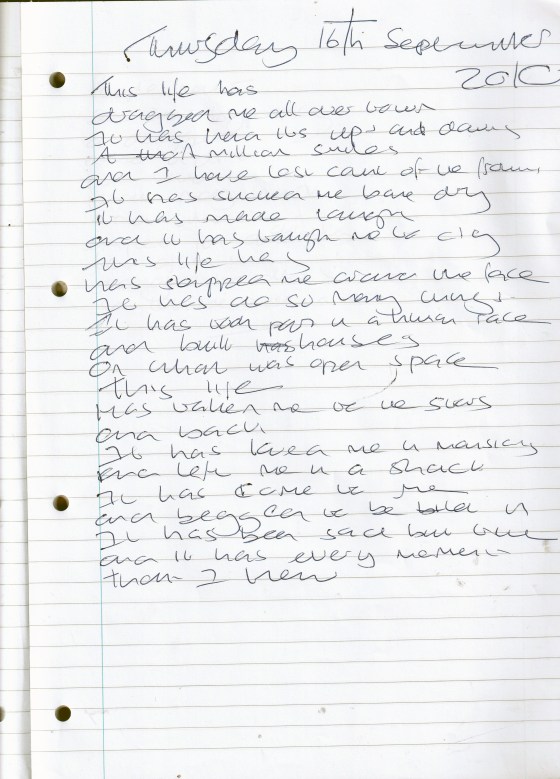 Thursday 16th September
2010
This life has
dragged me all over town
It has been its ups and downs
A million smiles
and I have lost count of the frowns
It has sucked me bone dry
it has made laugh
and it has taught me to cry
This life has
has slapped me around the face
It has do so many things
It has took part in a human race
and built houses
On what was open space
this life
Has taken me to the stars
and back
It has loved me in
and left me in a shack
It has came to me
and begged to be
It has been said but true
and it has every moment
that I knew